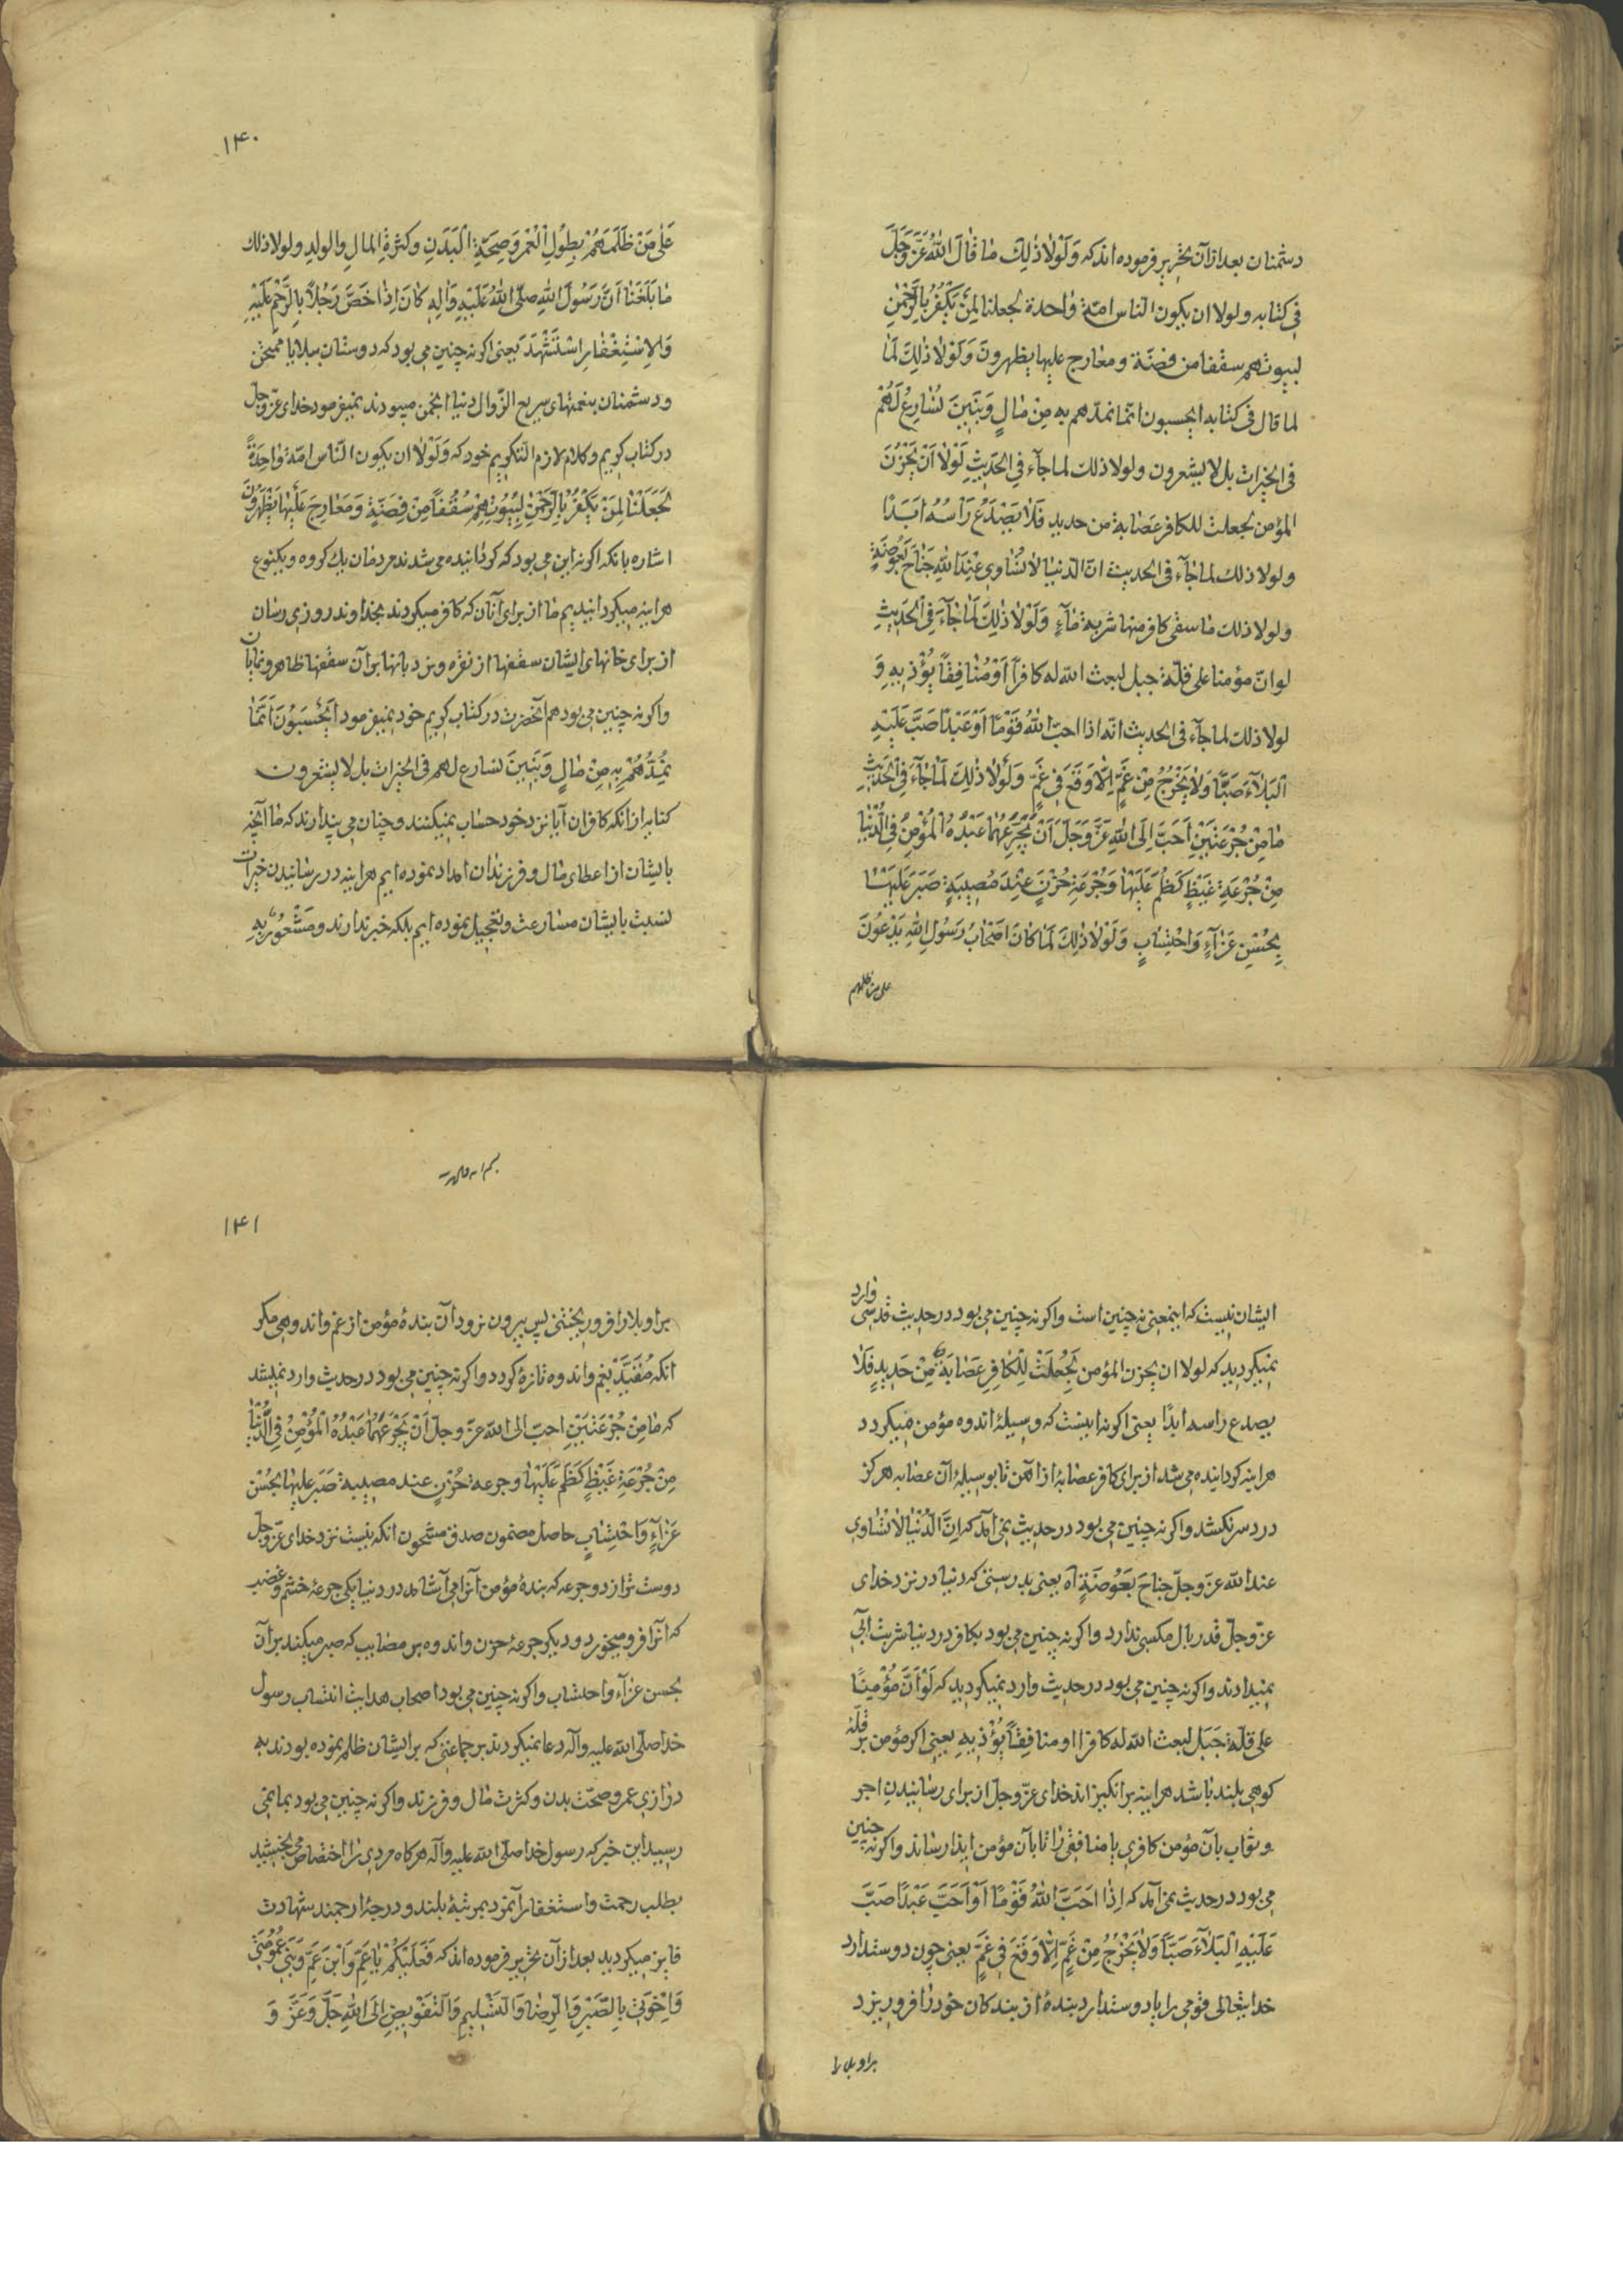 دشمنان بعد از آن تحریر فرموده اند که وَلَوْلَا ذٰلِكَ مٰا قٰالَ اللّٰهُ عَزَّ وَجَلَّ
فی کتابه ولولا ان یکون الناس امّة وٰاحدة لجعلنا لِمَنْ یَکْفُرُ بِالرَّحْمٰنِ
لبیوتهم سقفا من فضّة ومعٰارج علیها یظهرونَ وَلَوْلٰا ذٰلِكَ لَمٰا
لما قال فی کتابه ایحسبون انّما نمدّهم به مِنْ مٰالٍ وَبَنٖینَ نُسٰارِعُ لَهُمْ
فی الخیرات بل لا یشعرون ولولا ذلك لما جآء فِی الْحَدٖیثِ لَوْلٰا اَنْ یَحْزُنَ
المؤمن لجعلت للکافر عَصٰابة من حدید فَلٰا یَصْدَعُ رَاْسُهُ اَبَدًا
ولولا ذلك لما جٰآء فی الحدیث انّ الدّنیٰا لٰا تُسٰاوٖی عِنْدَ اللّٰهِ جَنٰاحَ بَعُوضَةٍ
ولولا ذلك مٰا سقی کافر منها شربة مٰآءٍ وَلَوْلٰا ذٰلِكَ لَمٰا جٰآءَ فِی الْحَدٖیثِ
لو انّ مؤمنا علی قلّة جبل لبعث اللّه له کافرًا اَوْ مُنٰافِقًا یُؤْذٖیهِ وَ
لولا ذلك لما جآء فی الحدیث انّه اذا احبّ اللّٰهُ قَوْمًا اَوْ عَبْدًا صَبَّ عَلَیْهِ
الْبَلٰآءَ صَبًّا وَلٰا یَخْرُجُ مِنْ غَمٍّ اِلّٰا وَقَعَ فٖی غَمٍّ وَلَوْلٰا ذٰلِكَ لَمٰا جٰآءَ فِی الْحَدٖیثِ
مٰا مِنْ جُرْعَتَیْنِ اَحَبَّ اِلَی اللّٰهِ عَزَّ وَجَلَّ اَنْ یَجْرَعَهُمٰا عَبْدُهُ الْمُؤْمِنُ فِی الدُّنْیٰا
مِنْ جُرْعَةِ غَیْظٍ کَظَمَ عَلَیْهٰا وَجُرْعَةِ حُزْنٍ عِنْدَ مُصٖیبَةٍ صَبَرَ عَلَیْهٰا
بِحُسْنِ عَزٰآءٍ وَاحْتِسٰابٍ وَلَوْلٰا ذٰلِكَ لَمٰا کٰانَ اَصْحٰابُ رَسُولِ اللّٰهِ یَدْعُونَ
علی من ظلمهم
۱۴۰
عَلٰی مَنْ ظَلَمَهُمْ بِطُولِ الْعُمْرِ وَصِحَّةِ الْبَدَنِ وکثرةِ المالِ والولدِ ولولا ذلك
مٰا بَلَغَنٰا اَنَّ رَسُولَ اللّٰهِ صلّی اللّٰهُ عَلَیْهِ وَاٰلِهٖ کٰانَ اِذٰا خَصَّ رَجُلًا بِالتَّرَحُّمِ عَلَیْهِ
وَالِاسْتِغْفٰارِ اسْتُشْهِدَ یعنی اکر نه چنین می بود که دوستان ببلایا ممتحن
ودشمنان بنعمتهای سریع الزّوال دنیا انجمن میبودند نمیفرمود خدای عزّ وجل
در کتاب کریم وکلام لازم التّکریم خود که وَلَوْلٰا ان یکون النّاس امّةً وٰاحِدَةً
لَجَعَلْنٰا لِمَنْ یَکْفُرُ بِالرَّحْمٰنِ لِبُیُوتِهِمْ سُقُفًا مِنْ فِضَّةٍ وَمَعٰارِجَ عَلَیْهٰا یَظْهَرُونَ
اشاره بانکه اکر نه این می بود که کردانیده می شدند مردمان یك کروه ویکنوع
هراینه میکردانیدیم ما از برای آنان که کافر میکردند بخداوند روزی رسان
از برای خانهای ایشان سقفها از نقره ونردبانها بر آن سقفها ظاهر ونمایان
واکر نه چنین می بود هم آنحضرت در کتاب کریم خود نمیفرمود اَیَحْسَبُونَ اَنَّمٰا
نُمِدُّهُمْ بِهٖ مِنْ مٰالٍ وَبَنٖینَ نسارع لهم فی الخیرات بل لا یشعرون
کنایه از انکه کافران آیا نزد خود حساب نمیکنند وچنان می پندارند که ما آنچه
بایشان از اعطای مال وفرزندان امداد نموده ایم هراینه در رسانیدن خیرات
نسبت بایشان مسارعت وتعجیل نموده ایم بلکه خبر ندارند ومَشْعُورٌ بِهِ
ایشان نیست که اینمعنی نه چنین است واکر نه چنین می بود در حدیث قدسی وارد
نمیکردید که لولا ان یحزن المؤمن لَجُعِلَتْ لِلْکٰافِرِ عَصٰابَةٌ مِنْ حَدٖیدٍ فَلٰا
یصدع راسه ابدًا یعنی اکر نه اینست که وسیلهٔ اندوه مؤمن میکردد
هراینه کردانیده می شد از برای کافر عصابهٔ از آهن تا بوسیلهٔ آن عصابه هرکز
دردسر نکشد واکر نه چنین می بود در حدیث نمی آمد که اِنَّ الدُّنْیٰا لٰا تُسٰاوٖی
عند اللّه عزّ وجلّ جناحَ بَعُوضَةٍ آه یعنی بدرستی که دنیا در نزد خدای
عزّ وجلّ قدر بال مکسی ندارد واکر نه چنین می بود بکافر در دنیا شربت آبی
نمیدادند واکر نه چنین می بود در حدیث وارد نمیکردید که لَوْ اَنَّ مُؤْمِنًا
علی قلّة جَبَل لبعث اللّه له کافرا او منافِقًا یُؤْذٖیهِ یعنی اکر مؤمن بر قلّهٔ
کوهی بلند باشد هراینه برانکیزاند خدای عزّ وجلّ از برای رسانیدن اجر
وثواب بآن مؤمن کافری یا منافقی را تا بآن مؤمن ایذا رساند واکر نه چنین
می بود در حدیث نمی آمد که اِذٰا اَحَبَّ اللّٰهُ قَوْمًا اَوْ اَحَبَّ عَبْدًا صَبَّ
عَلَیْهِ الْبَلٰآءَ صَبًّا وَلٰا یَخْرُجُ مِنْ غَمٍّ اِلّٰا وَقَعَ فٖی غَمٍّ یعنی چون دوست دارد
خدایتعالی قومی را یا دوست دارد بندهٔ از بندکان خود را فرو ریزد
بر او بلا را
۱۴۱
بر او بلا را فرو ریختنی پس بیرون نرود آن بندهٔ مؤمن از غم واندوهی مکر
انکه مُقَیَّد بغم واندوه تازهٔ کردد واکر نه چنین می بود در حدیث وارد نمیشد
که مٰا مِنْ جُرْعَتَیْنِ احبّ الی اللّه عزّ وجلّ اَنْ یَجْرَعَهُمٰا عَبْدُهُ الْمُؤْمِنُ فِی الدُّنْیٰا
مِنْ جُرْعَةِ غَیْظٍ کَظَمَ عَلَیْهٰا وجرعة حُزْنٍ عند مصیبة صَبَرَ علیها بحُسْنِ
عَزٰآءٍ وَاحْتِسٰابٍ حاصل مضمون صدق مشحون انکه نیست نزد خدای عزّ وجلّ
دوست تر از دو جرعه که بندهٔ مؤمن آنرا می آشامد در دنیا یکی جرعهٔ خشم وغضب
که آنرا فرو میخورد ودیکر جرعهٔ حزن واندوه بر مصایب که صبر میکند بر آن
بحسن عزآء واحتساب واکر نه چنین می بود اصحاب هدایت انتساب رسول
خدا صلّی اللّه علیه وآله دعا نمیکردند بر جماعتی که بر ایشان ظلم نموده بودند به
درازی عمر وصحّت بدن وکثرت مال وفرزند واکر نه چنین می بود بما نمی
رسید این خبر که رسول خدا صلّی اللّه علیه وآله هرکاه مردی را اختصاص می بخشید
بطلب رحمت واستغفار آنمرد بمرتبهٔ بلند ودرجهٔ ارجمند شهادت
فایز میکردید بعد از آن تحریر فرموده اند که فَعَلَیْکُمْ یٰا عَمِّ وَابْنَ عَمِّ وَبَنٖی عُمُومَتٖی
وَاِخْوَتٖی بِالصَّبْرِ وَالرِّضٰا وَالتَّسْلٖیمِ وَالتَّفْوٖیضِ اِلَی اللّٰهِ جَلَّ وَعَزَّ وَ